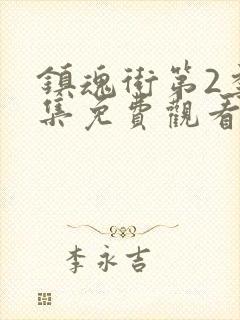 鎮魂街第2季
集免費觀看
李永吉